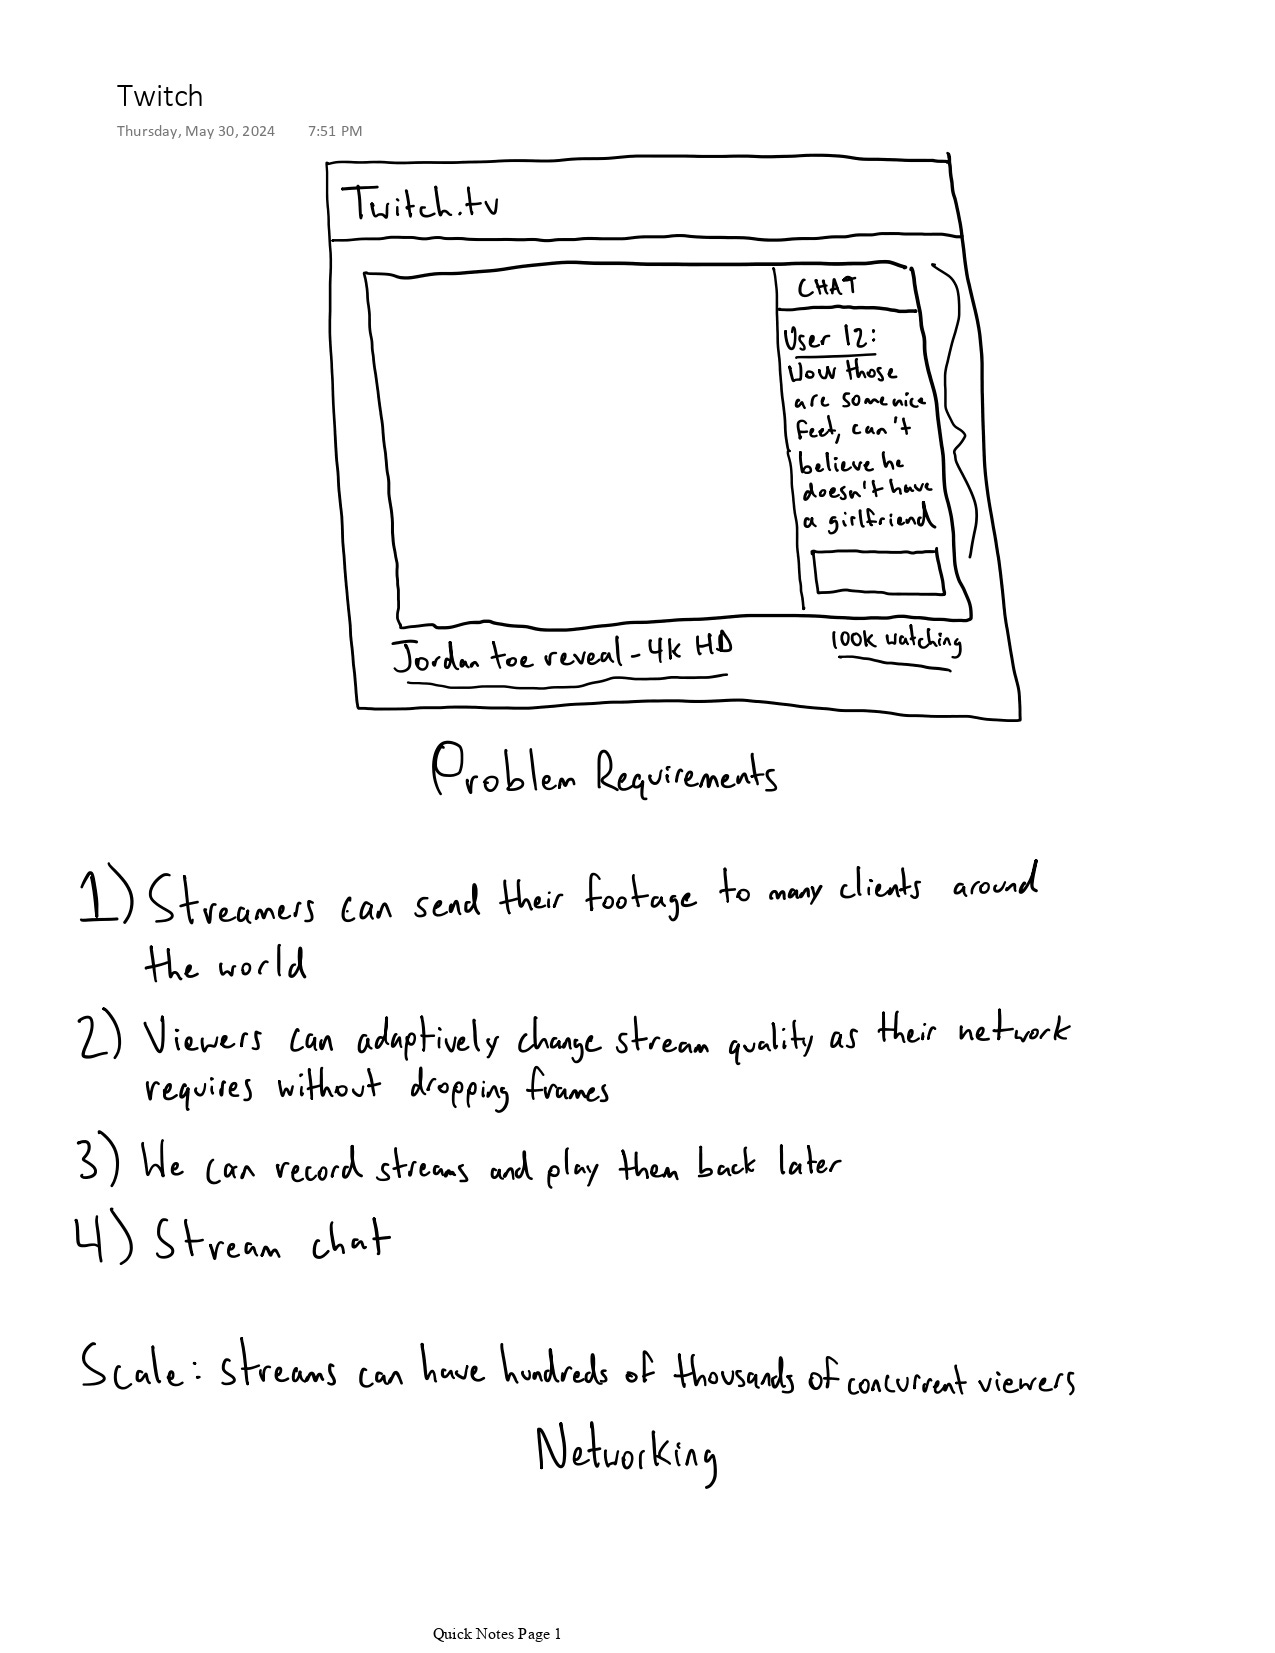 Twitch
Thursday, May 30, 2024 7:51 PM
Twitch.tv
CHAT
User 12:
Wow those
are some nice
feet, can't
believe he
doesn't have
a girlfriend
Jordan toe reveal - 4k HD
100k watching
Problem Requirements
1) Streamers can send their footage to many clients around
the world
2) Viewers can adaptively change stream quality as their network
requires without dropping frames
3) We can record streams and play them back later
4) Stream chat
Scale: streams can have hundreds of thousands of concurrent viewers
Networking
Quick Notes Page 1